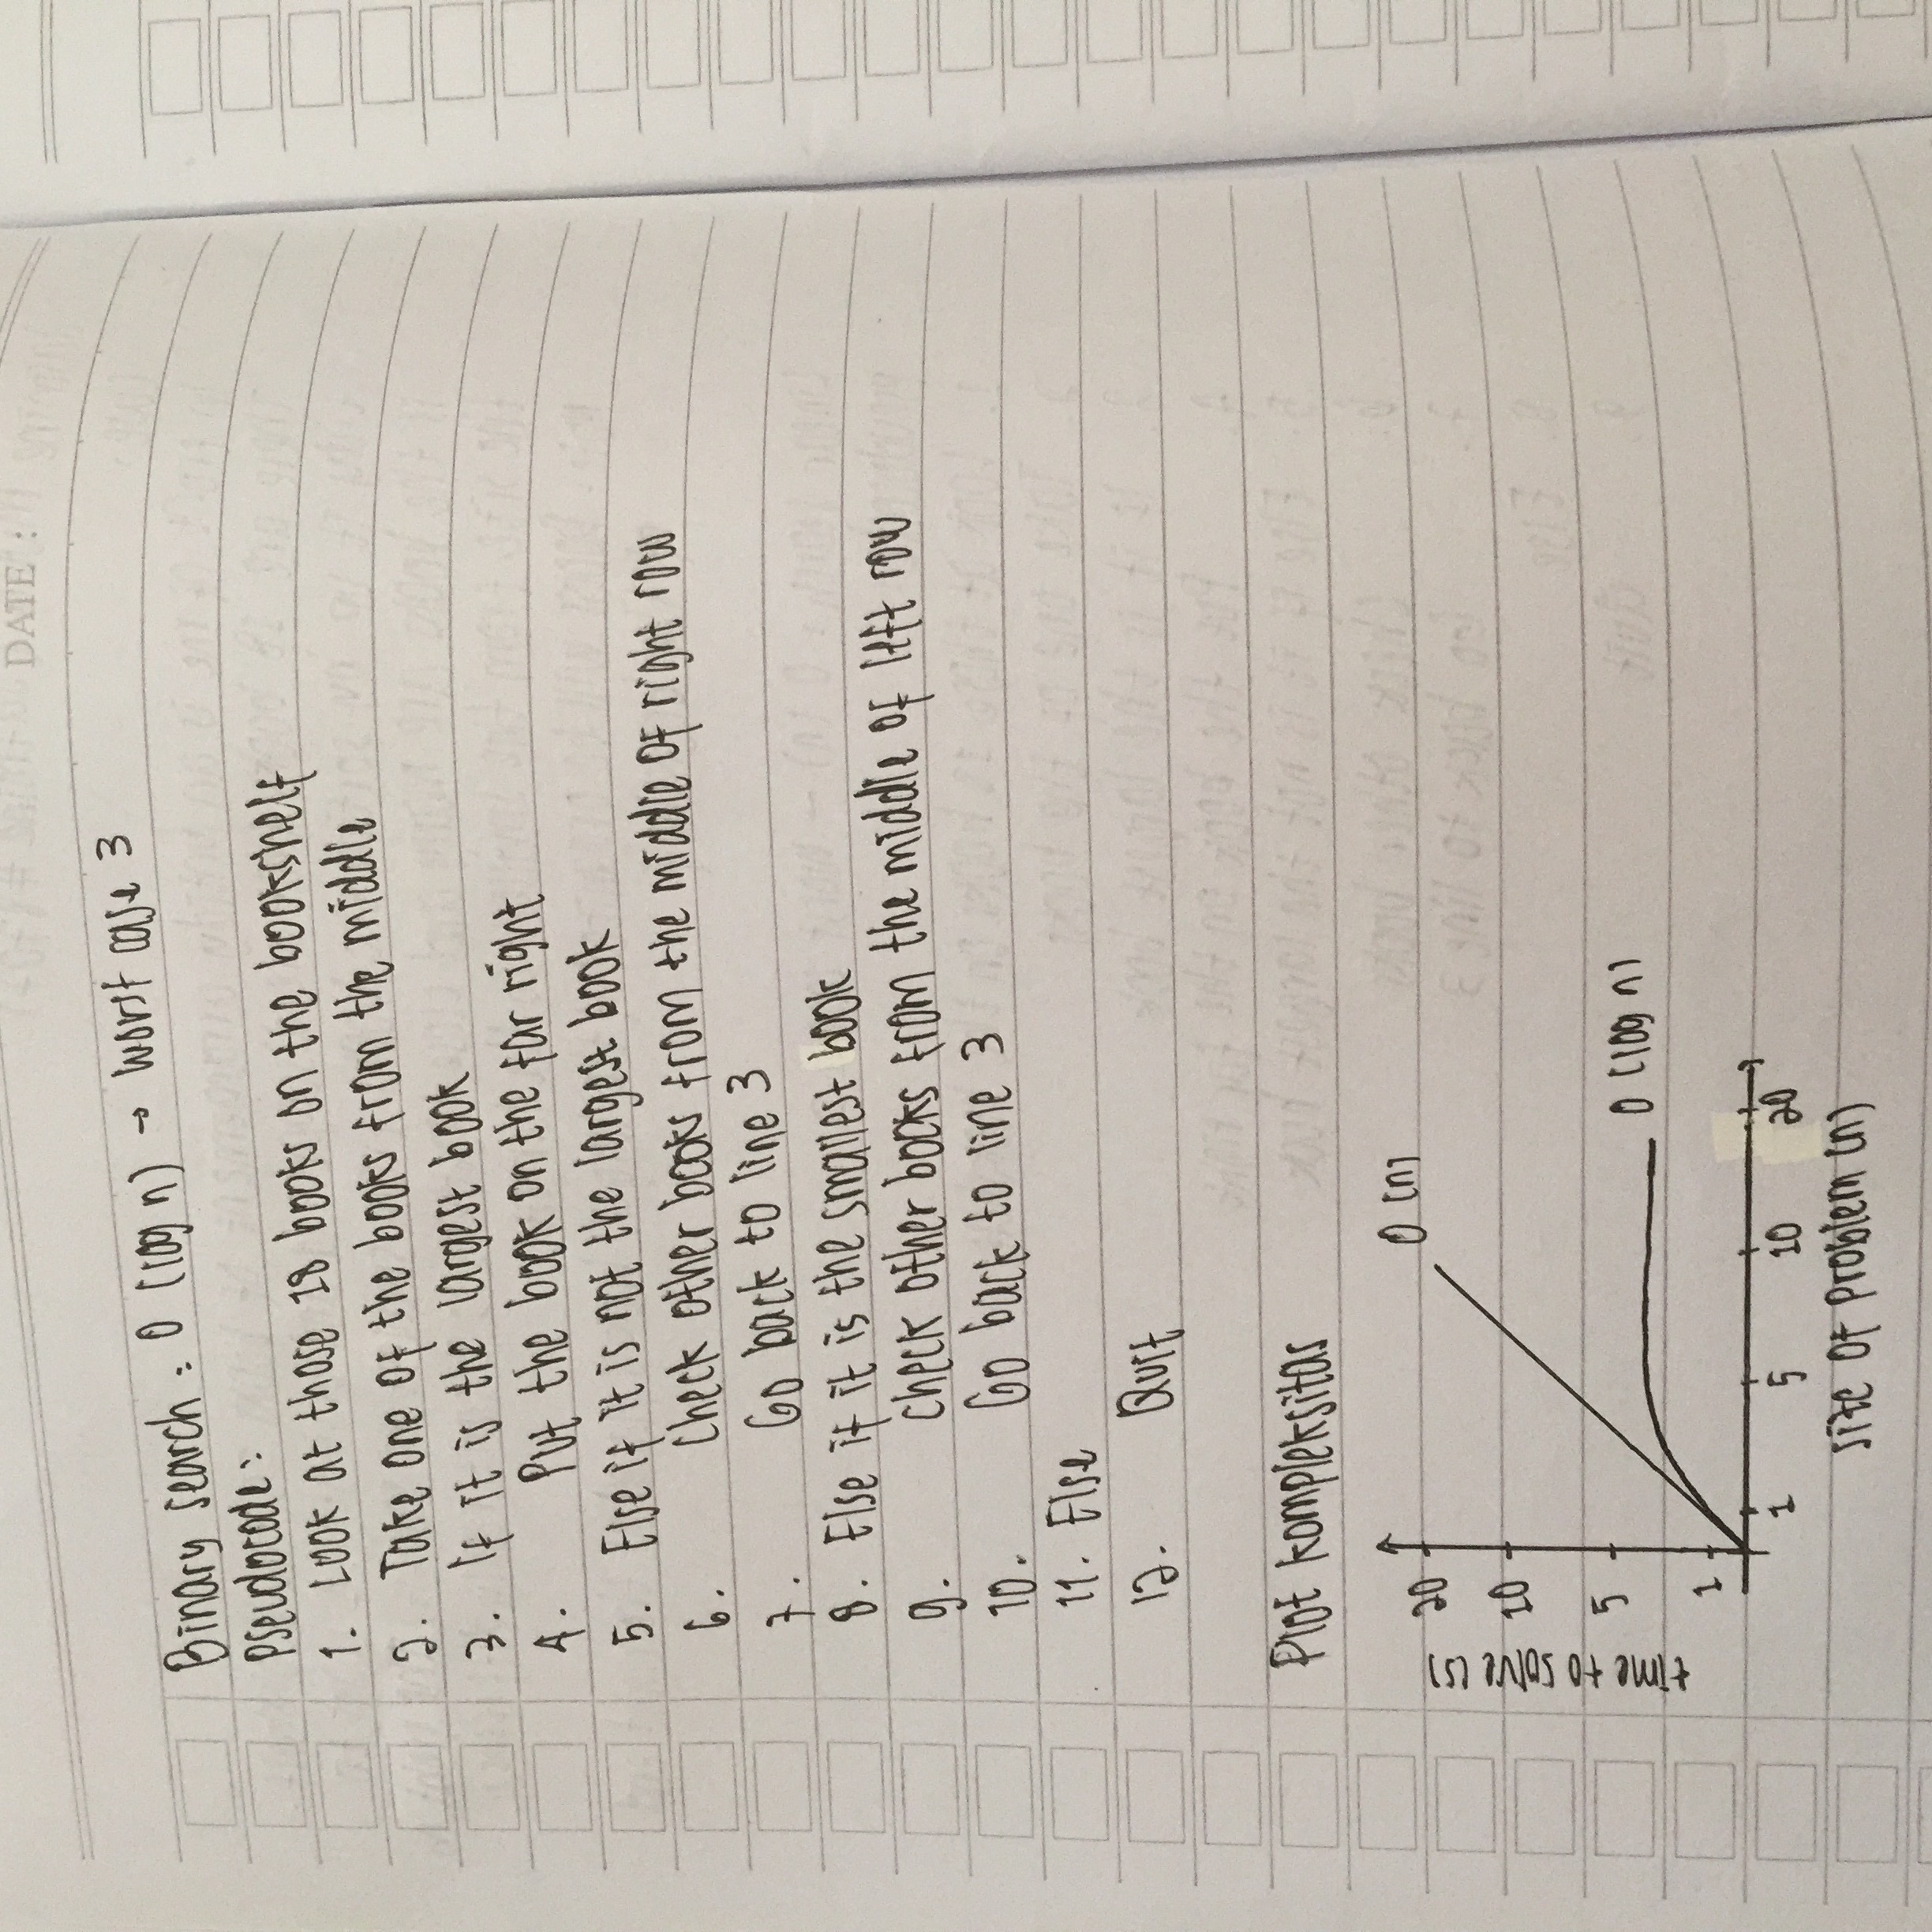 DATE :
Binary search : O (log n) → worst case 3
Pseudocode :
1. Look at those 18 books on the bookshelf
2. Take one of the books from the middle
3. If it is the largest book
4. Put the book on the far right
5. Else if it is not the largest book
6. Check other books from the middle of right row
7. Go back to line 3
8. Else if it is the smallest book
9. Check other books from the middle of left row
10. Go back to line 3
11. Else
12. Quit
Plot kompleksitas
time to solve (s)
20
10
5
1
O (n)
O (log n)
1 5 10 20
size of problem (n)